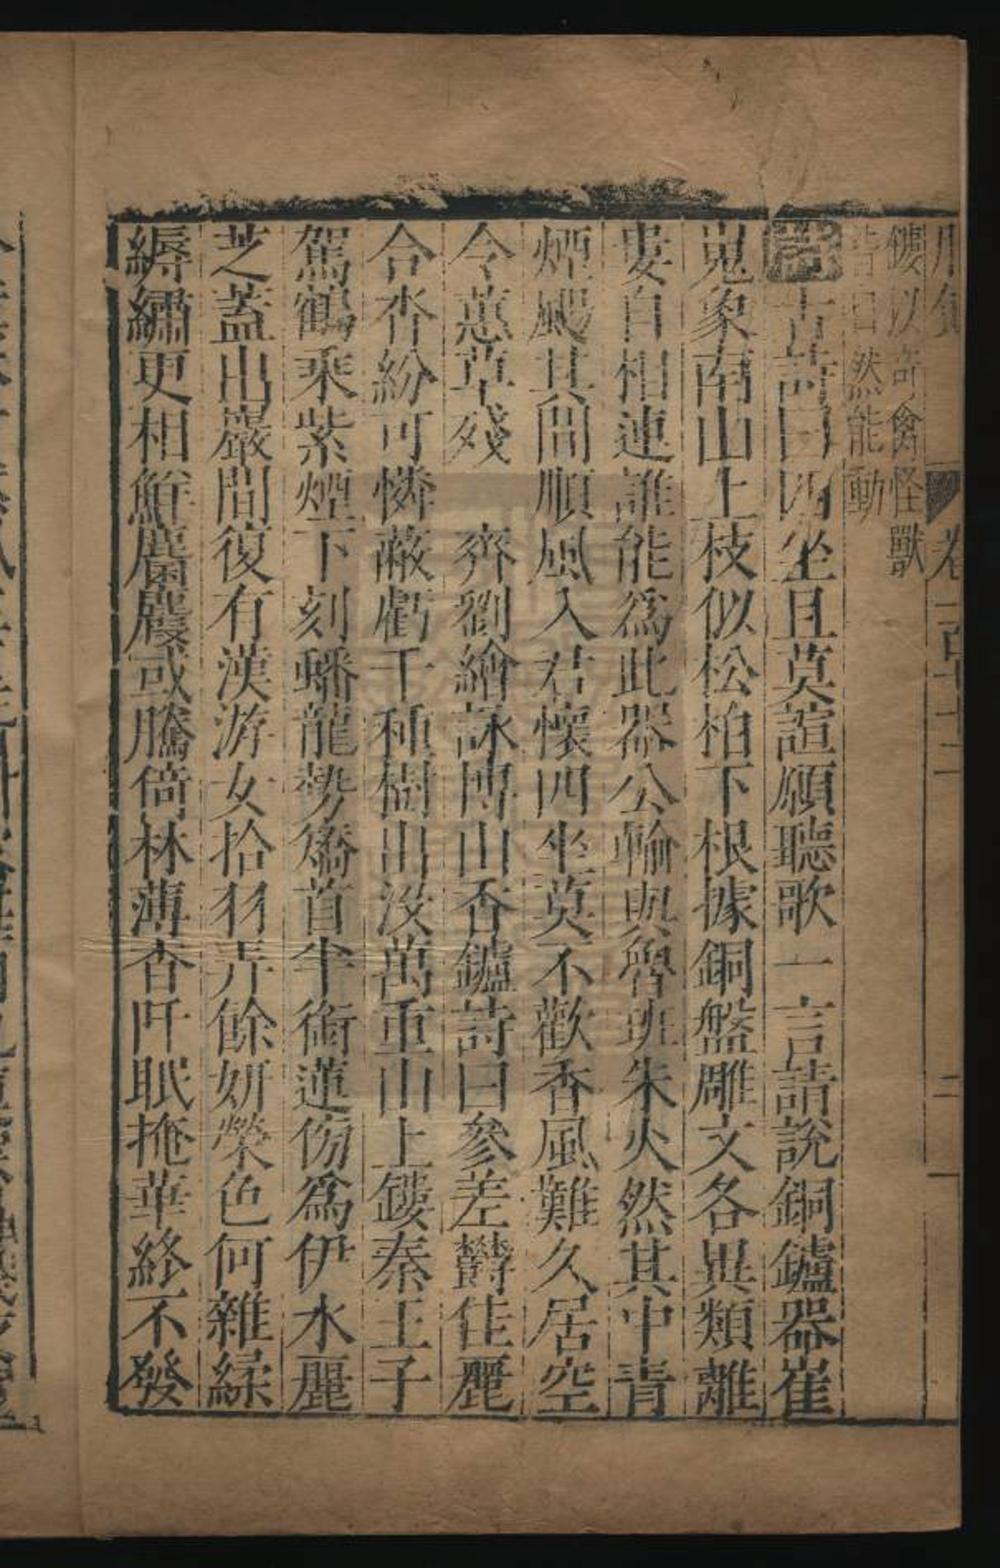 鏤以奇禽怪獸
皆自然能動
詩 古詩曰四坐且莫諠願聽歌一言請說銅鑪器崔
嵬象南山上枝似松柏下根據銅盤雕文各異類離
婁自相連誰能為此器公輸與魯班朱火然其中青
煙颺其間順風入君懷四坐莫不歡香風難久居空
令蕙草殘　齊劉繪詠博山香鑪詩曰參差鬱佳麗
合沓紛可憐蔽虧千種樹出沒萬重山上鏤秦王子
駕鶴乘紫煙下刻蟠龍勢矯首半銜蓮傍為伊水麗
芝蓋出巖間復有漢游女拾羽弄餘妍榮色何雜糅
縟繡更相鮮麏麚或騰倚林薄杳阡眠掩華終不發